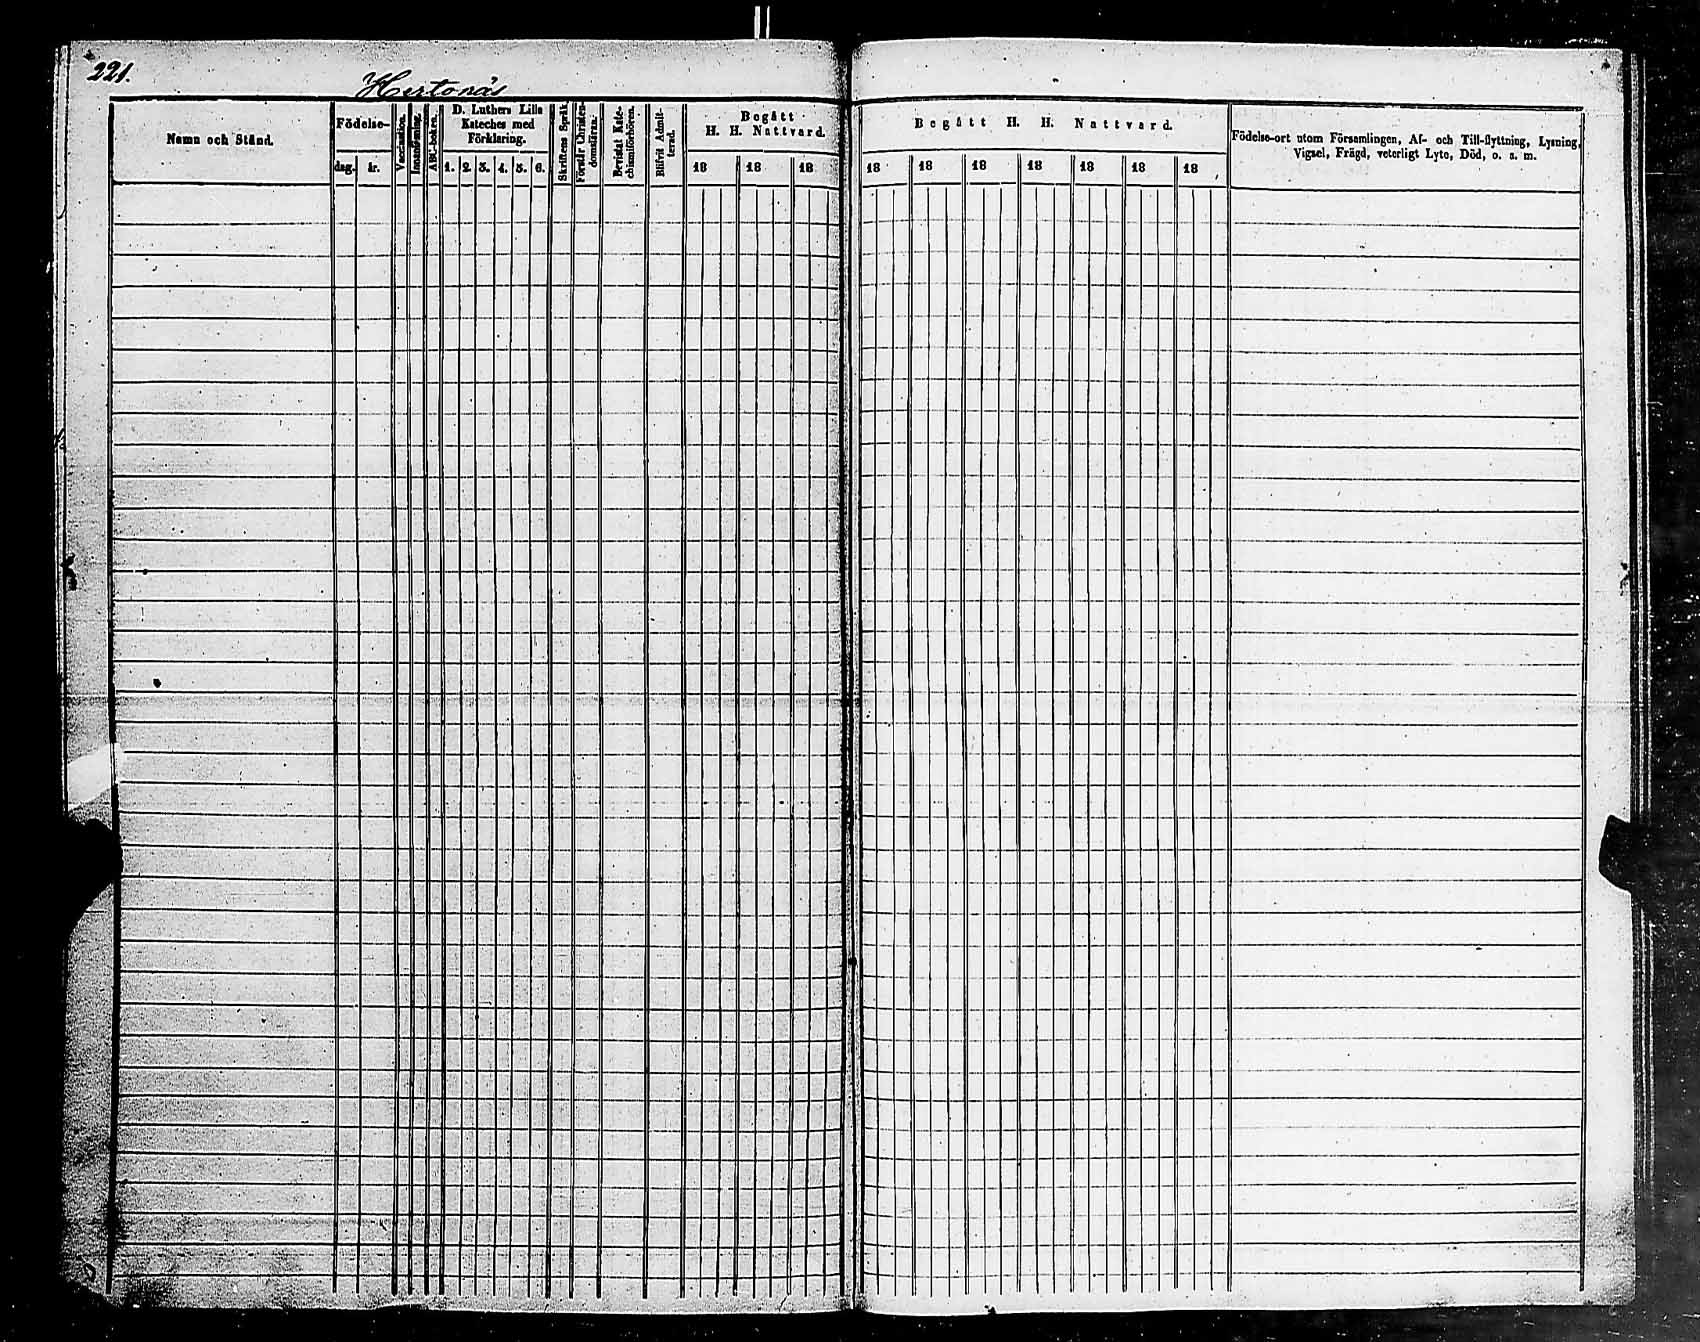 221.
Hertonäs
Namn och Stånd.
Födelse-
dag.
år.
Vaccination.
Innanläsning.
ABC-boken.
D. Luthers Lilla
Kateches med
Förklaring.
1. 2. 3. 4. 5. 6.
Skriftens Språk.
Förstår Christen-
domsläran.
Bevistat Kate-
chismiförhören.
Blifvit Admit-
terad.
Begått
H. H. Nattvard.
18 18 18
Begått H. H. Nattvard.
18 18 18 18 18 18 18
Födelse-ort utom Församlingen, Af- och Till-flyttning, Lysning,
Vigsel, Frägd, veterligt Lyte, Död, o. s. m.